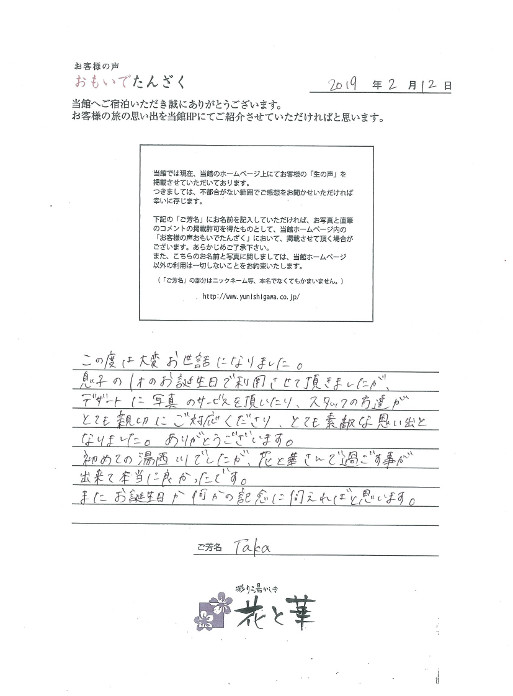 お客様の声
おもいでたんざく
2019 年 2 月 12 日
当館へご宿泊いただき誠にありがとうございます。
お客様の旅の思い出を当館HPにてご紹介させていただければと思います。
当館では現在、当館のホームページ上にてお客様の「生の声」を
掲載させていただいております。
つきましては、不都合がない範囲でご感想をお聞かせいただければ
幸いに存じます。
下記の「ご芳名」にお名前を記入していただければ、お写真と直筆
のコメントの掲載許可を得たものとして、当館ホームページ内の
「お客様の声おもいでたんざく」において、掲載させて頂く場合が
ございます。あらかじめご了承下さい。
また、こちらのお名前と写真に関しましては、当館ホームページ
以外の利用は一切しないことをお約束いたします。
（「ご芳名」の部分はニックネーム等、本名でなくてもかまいません。）
http://www.yunishigawa.co.jp/
この度は大変お世話になりました。
息子の1才のお誕生日で利用させて頂きましたが、
デザートに写真のサービスを頂いたり、スタッフの方達が
とても親切にご対応くださり、とても素敵な思い出と
なりました。ありがとうございます。
初めての湯西川でしたが、花と華さんで過ごす事が
出来て本当に良かったです。
またお誕生日か何かの記念に伺えればと思います。
ご芳名 Taka
彩り湯かしき
花と華